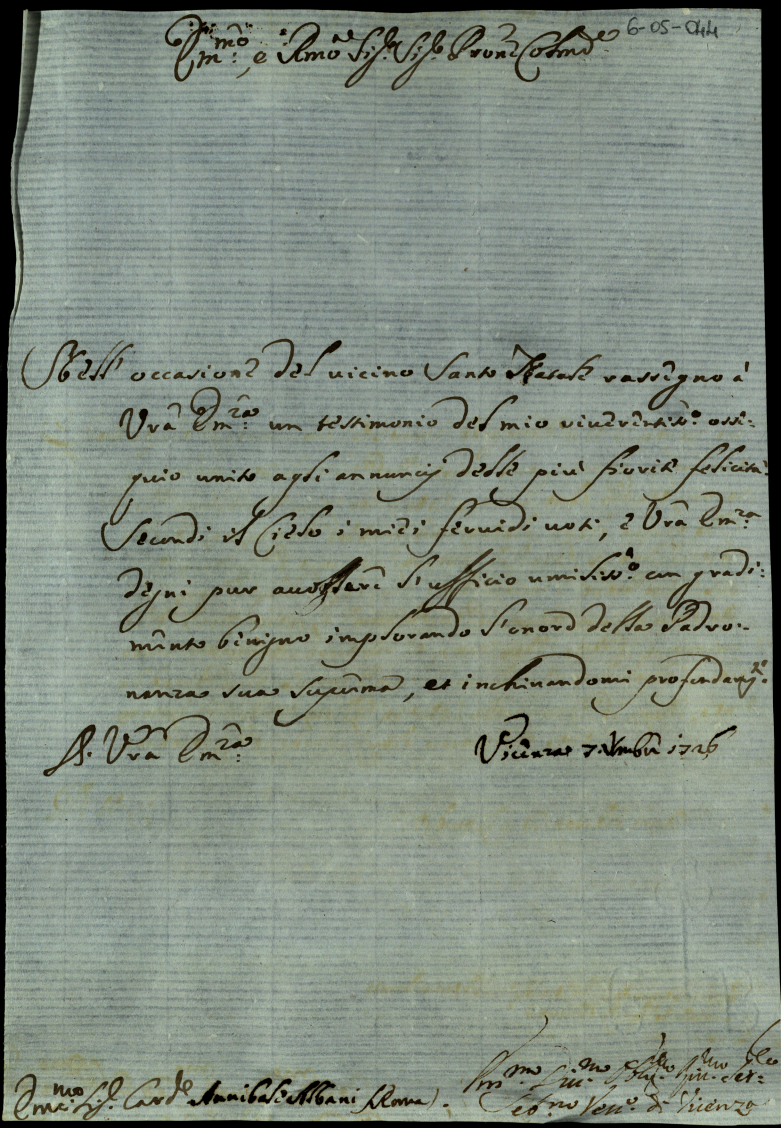 6-05-044
Em.mo, e R.mo Sig.r Sig.r Pron Colend.o
Nell' occasione del vicino Santo Natale rassegno à
Vrã Em.za un testimonio del mio riverentis.o osse:
quio unito agli annuncij delle più fiorite felicità.
Secondi il Cielo i miei fervidi voti, e Vrã Em.za
degni pur l'ufficio umiliss.o con gradi:
mento benigno implorando l'onor della Padro:
nanza sua suprema, et inchinandomi profondam.te
A. Vrã Em.za Vicenza 1726
Em.mo Sig.r Card.le Annibale Albani (Roma).
Vesc.o di Vicenza